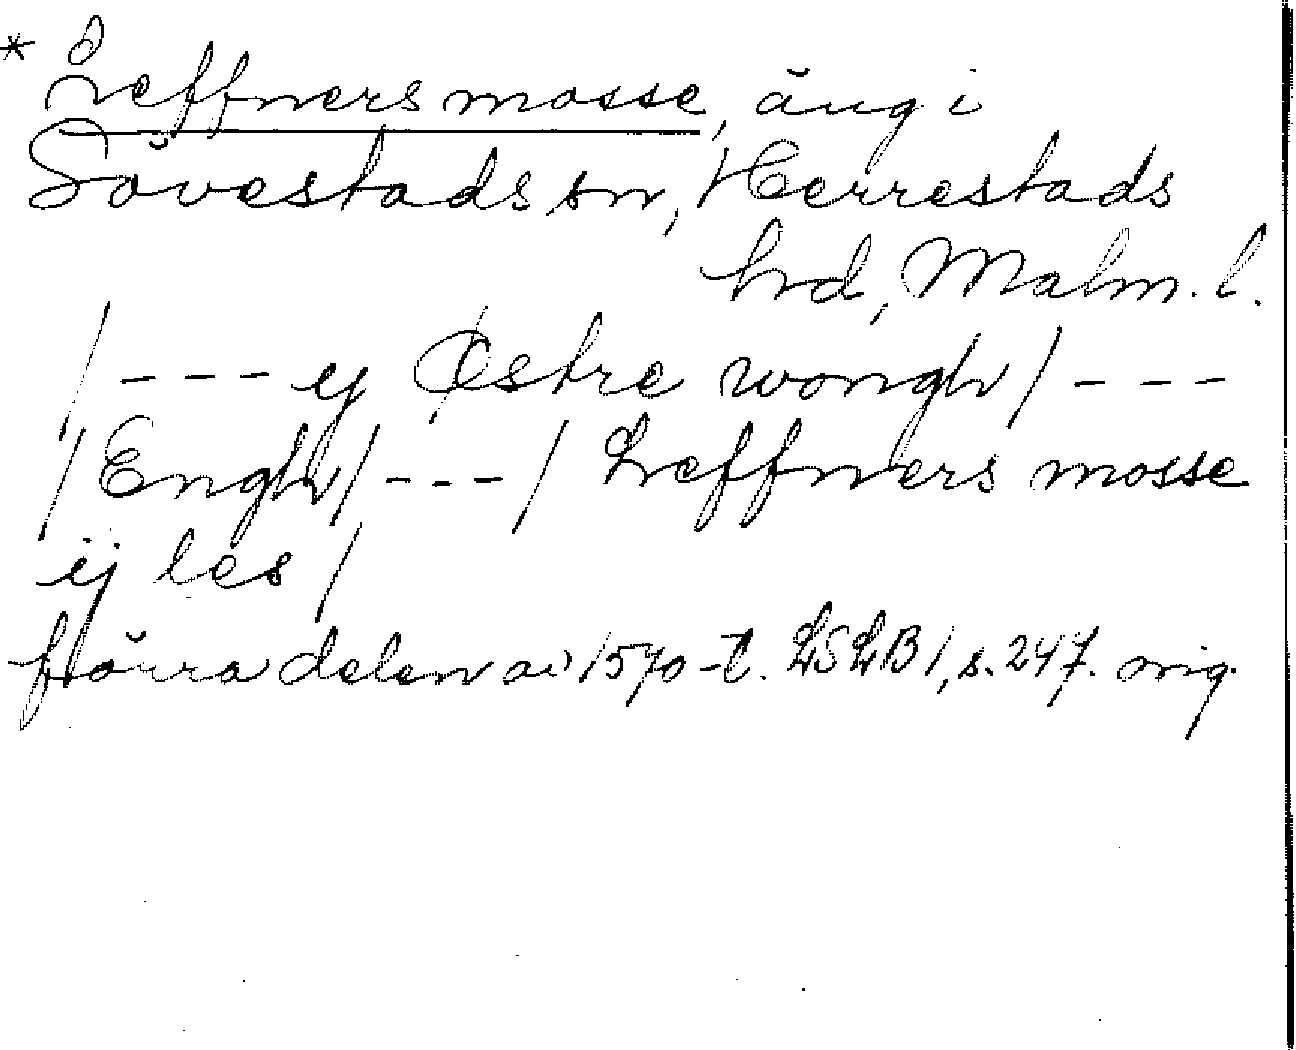 * Leffners mosse, äng i
Sövestads sn, Herrestads
hrd, Malm. l.
/ - - - ej Østre wongh / - - -
/ Engh / - - - / Leffners mosse
ij les /
förra delen av 1570-t. LSLB 1, s. 247. orig.